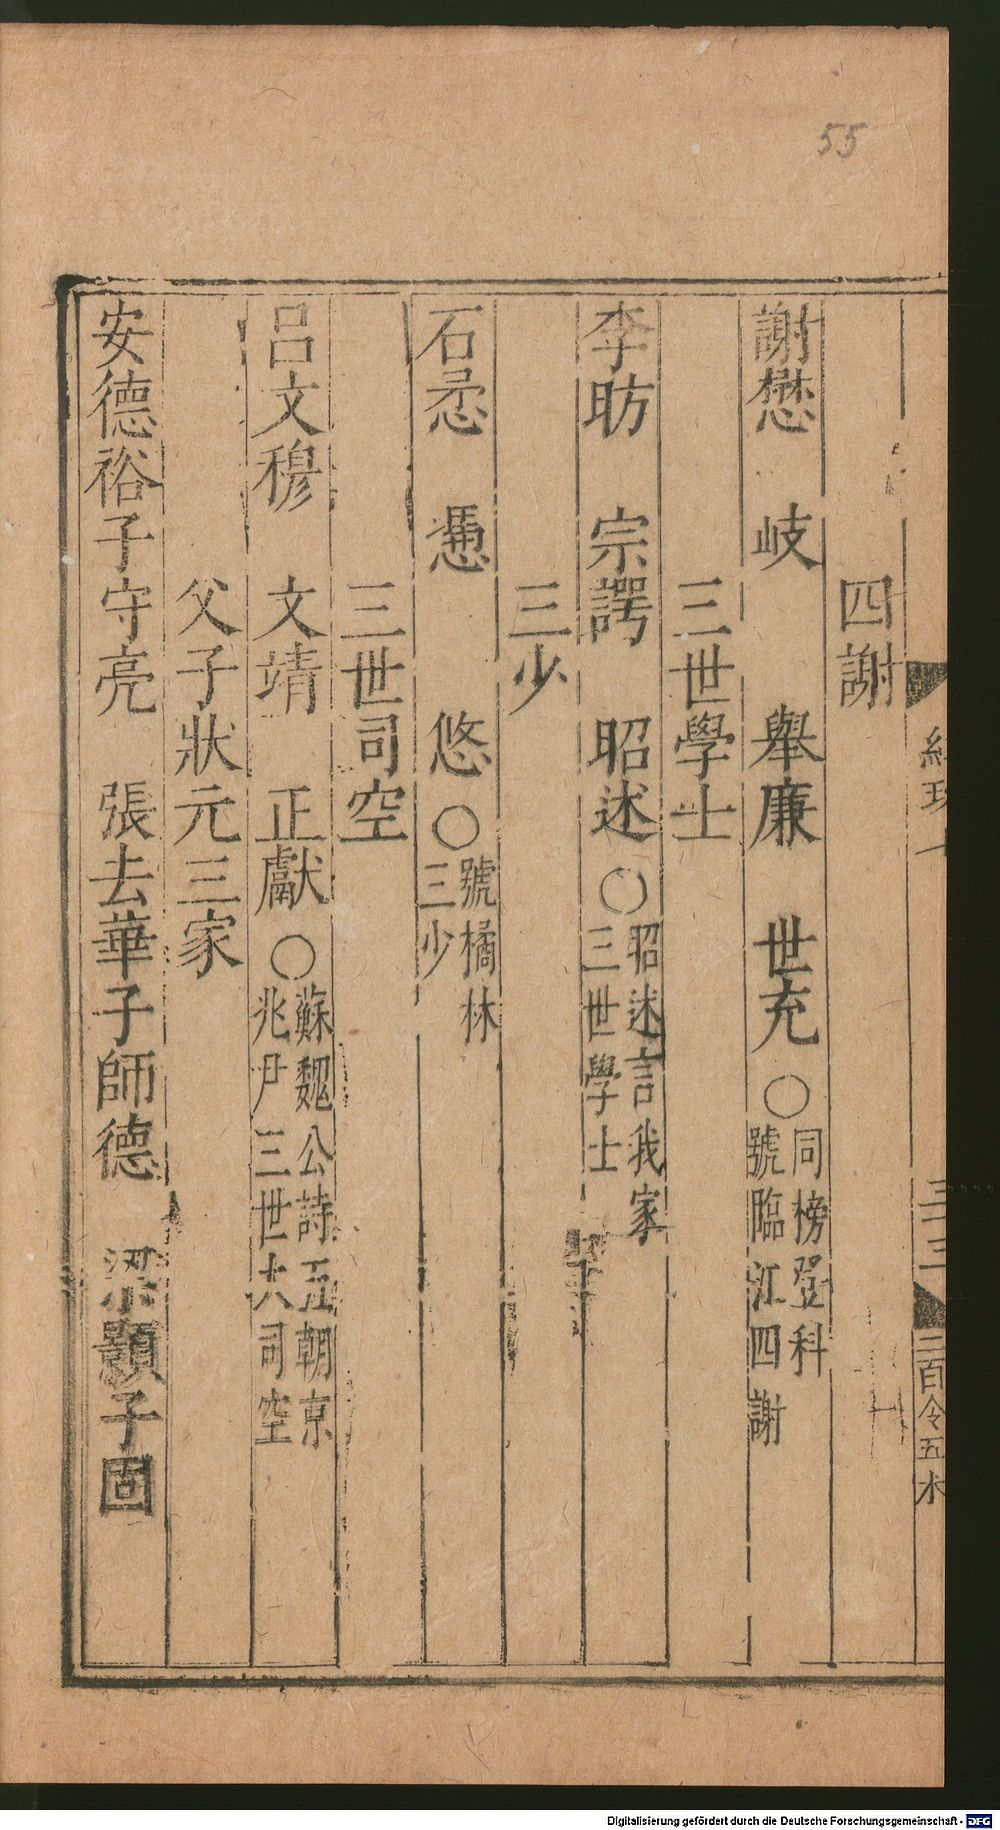 55
三十三
二百令五水
四謝
謝懋　岐　舉廉　世充○同榜登科
號臨江四謝
三世學士
李昉　宗諤　昭述○昭述言我家
三世學士
三少
石㤅　慿　悠○號橘林
三少
三世司空
呂文穆　文靖　正獻○蘇魏公詩五朝京
兆尹三世大司空
父子狀元三家
安德裕子守亮　張去華子師德　梁顥子固
Digitalisierung gefördert durch die Deutsche Forschungsgemeinschaft - DFG